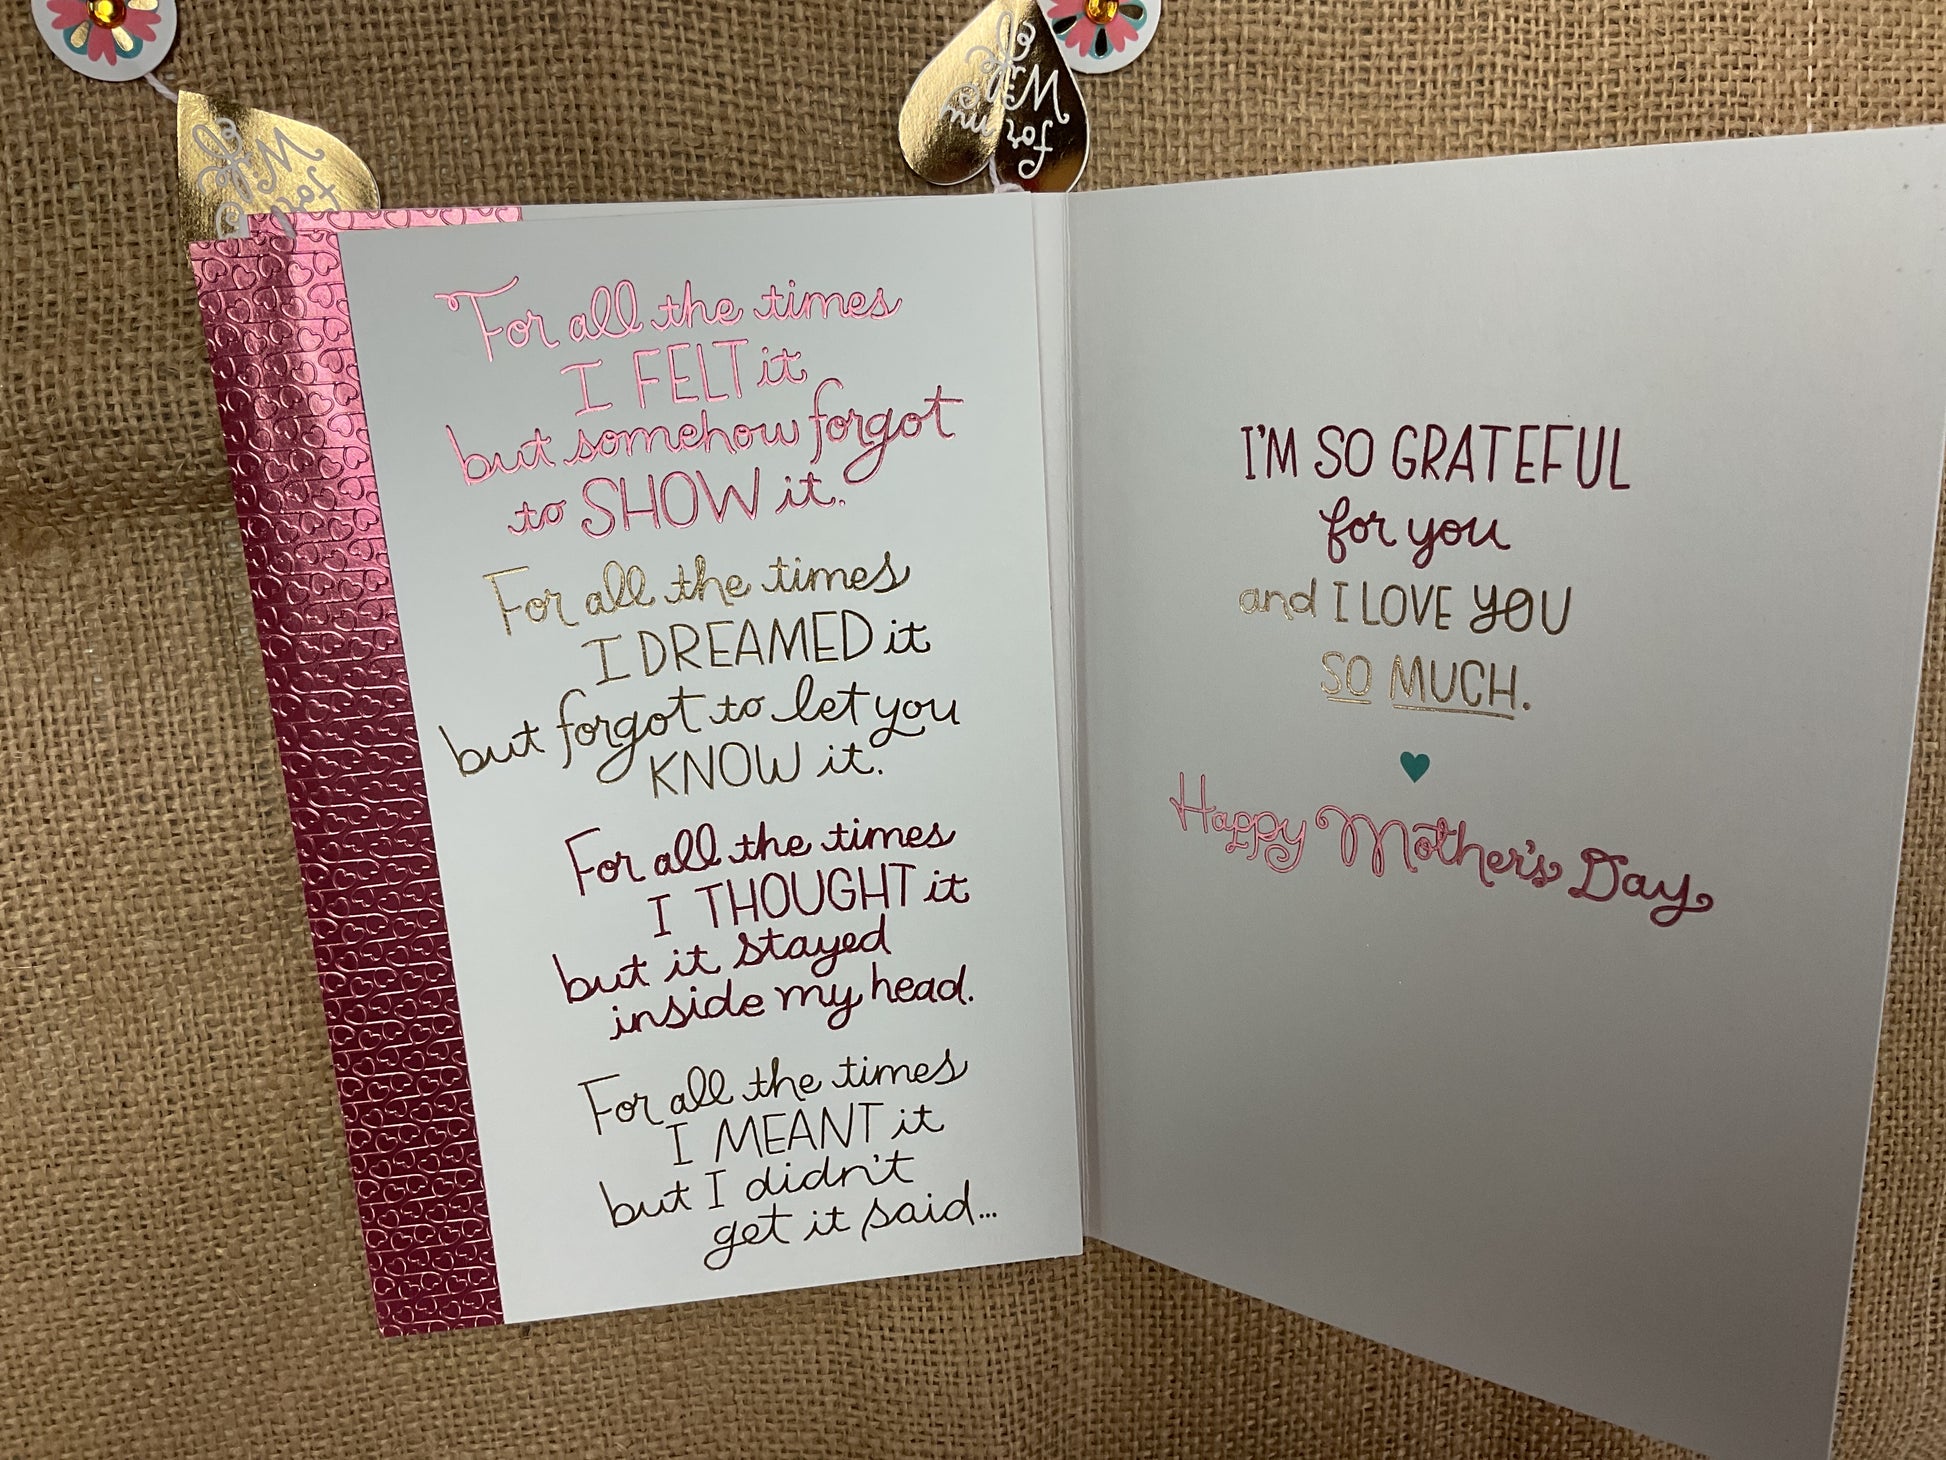 for my
Wife
for
Wife
For all the times
I FELT it
but somehow forgot
to SHOW it.
For all the times
I DREAMED it
but forgot to let you
KNOW it.
For all the times
I THOUGHT it
but it stayed
inside my head.
For all the times
I MEANT it
but I didn't
get it said...
I'M SO GRATEFUL
for you
and I LOVE YOU
SO MUCH.
Happy Mother's Day